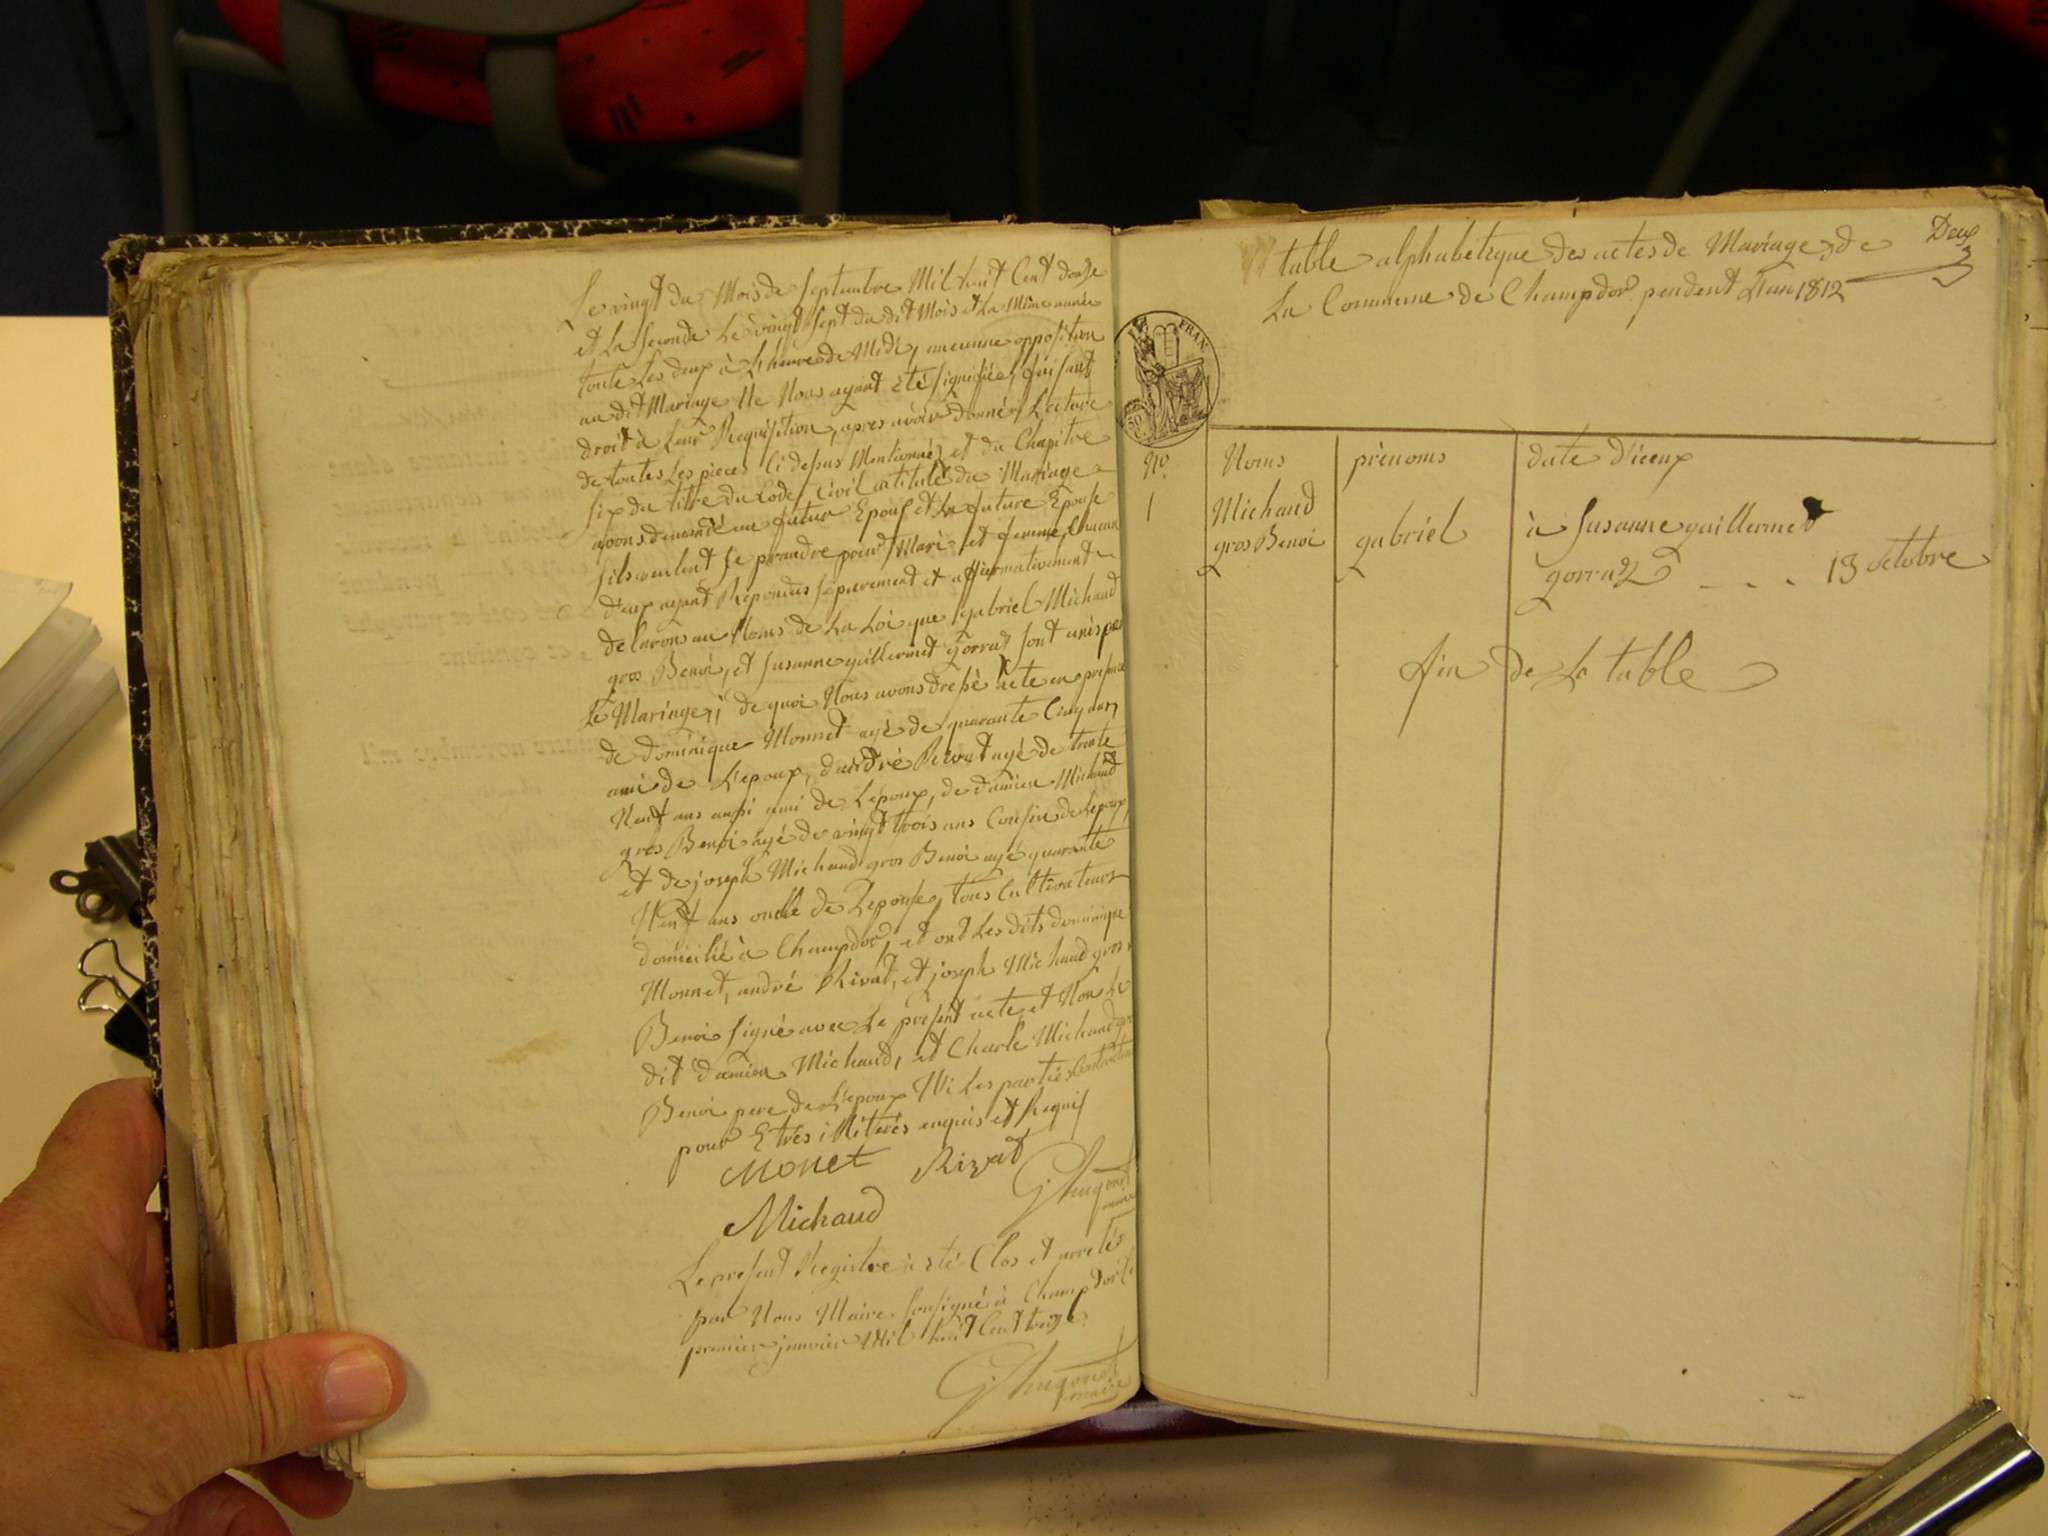 Le vingt du Mois de septembre Mil huit Cent douze
et La seconde Le vingt sept du dit Mois et La Même année
toute Les deux à L'heure de Midi, aucunne opposition
au dit Mariage Ne Nous ayant été signifiée, faisant
droit à Leur Requisition, apres avoir donné Lecture
de toutes Les pieces Ci dessus Mentionnés et du Chapitre
six du titre du Code Civil intitulé du Mariage
avons demandé au futur Epoux et La future Epouse
s'ils veulent se prandre pour Mari et femme, Chacun
d'eux ayant Repondus séparement et affirmativement
delarons au Noms de La Loi que gabriel Michaud
gros Benoi, et susanne guillermet gorrat sont unis par
Le Mariage; de quoi Nous avons dressé acte en présence
de dominique Monnet agé de quarante Cinq ans
ami de L'epoux, d'andré Rivat agé de trente
Neuf ans aussi ami de L'epoux, de damien Michaud
gros Benoi agé de vingt trois ans Cousin de Lepoux,
et de joseph Michaud gros Benoi agé quarante
Neuf ans oncle de Lepouse, tous Cultivateurs
domicilié à Champdor, et ont Les dits dominique
Monnet, andré Rivat, et joseph Michaud gros
Benoi signé avec Le présent acte et Non Le
dit damien Michaud, et Charle Michaud gros
Benoi pere de L'epoux Ni Les parties Contractantes
pour Etres illiterés enquis et Requis
Monet Rivat
Michaud G. hugonet
maire
Le present Registre à été Clos et arretés
par Nous Maire soussigné à Champdor Le
premier janvier Mil huit Cent treize
G. hugonet
maire
Deux
table alphabetique des actes de Mariage de
La Commune de Champdor pendent L'an 1812
FRAN
50 C.
No. Noms prénoms date d'iceux
1 Michaud gabriel à susanne guillermet
gros Benoi gorrat - - - 13 octobre
fin de La table